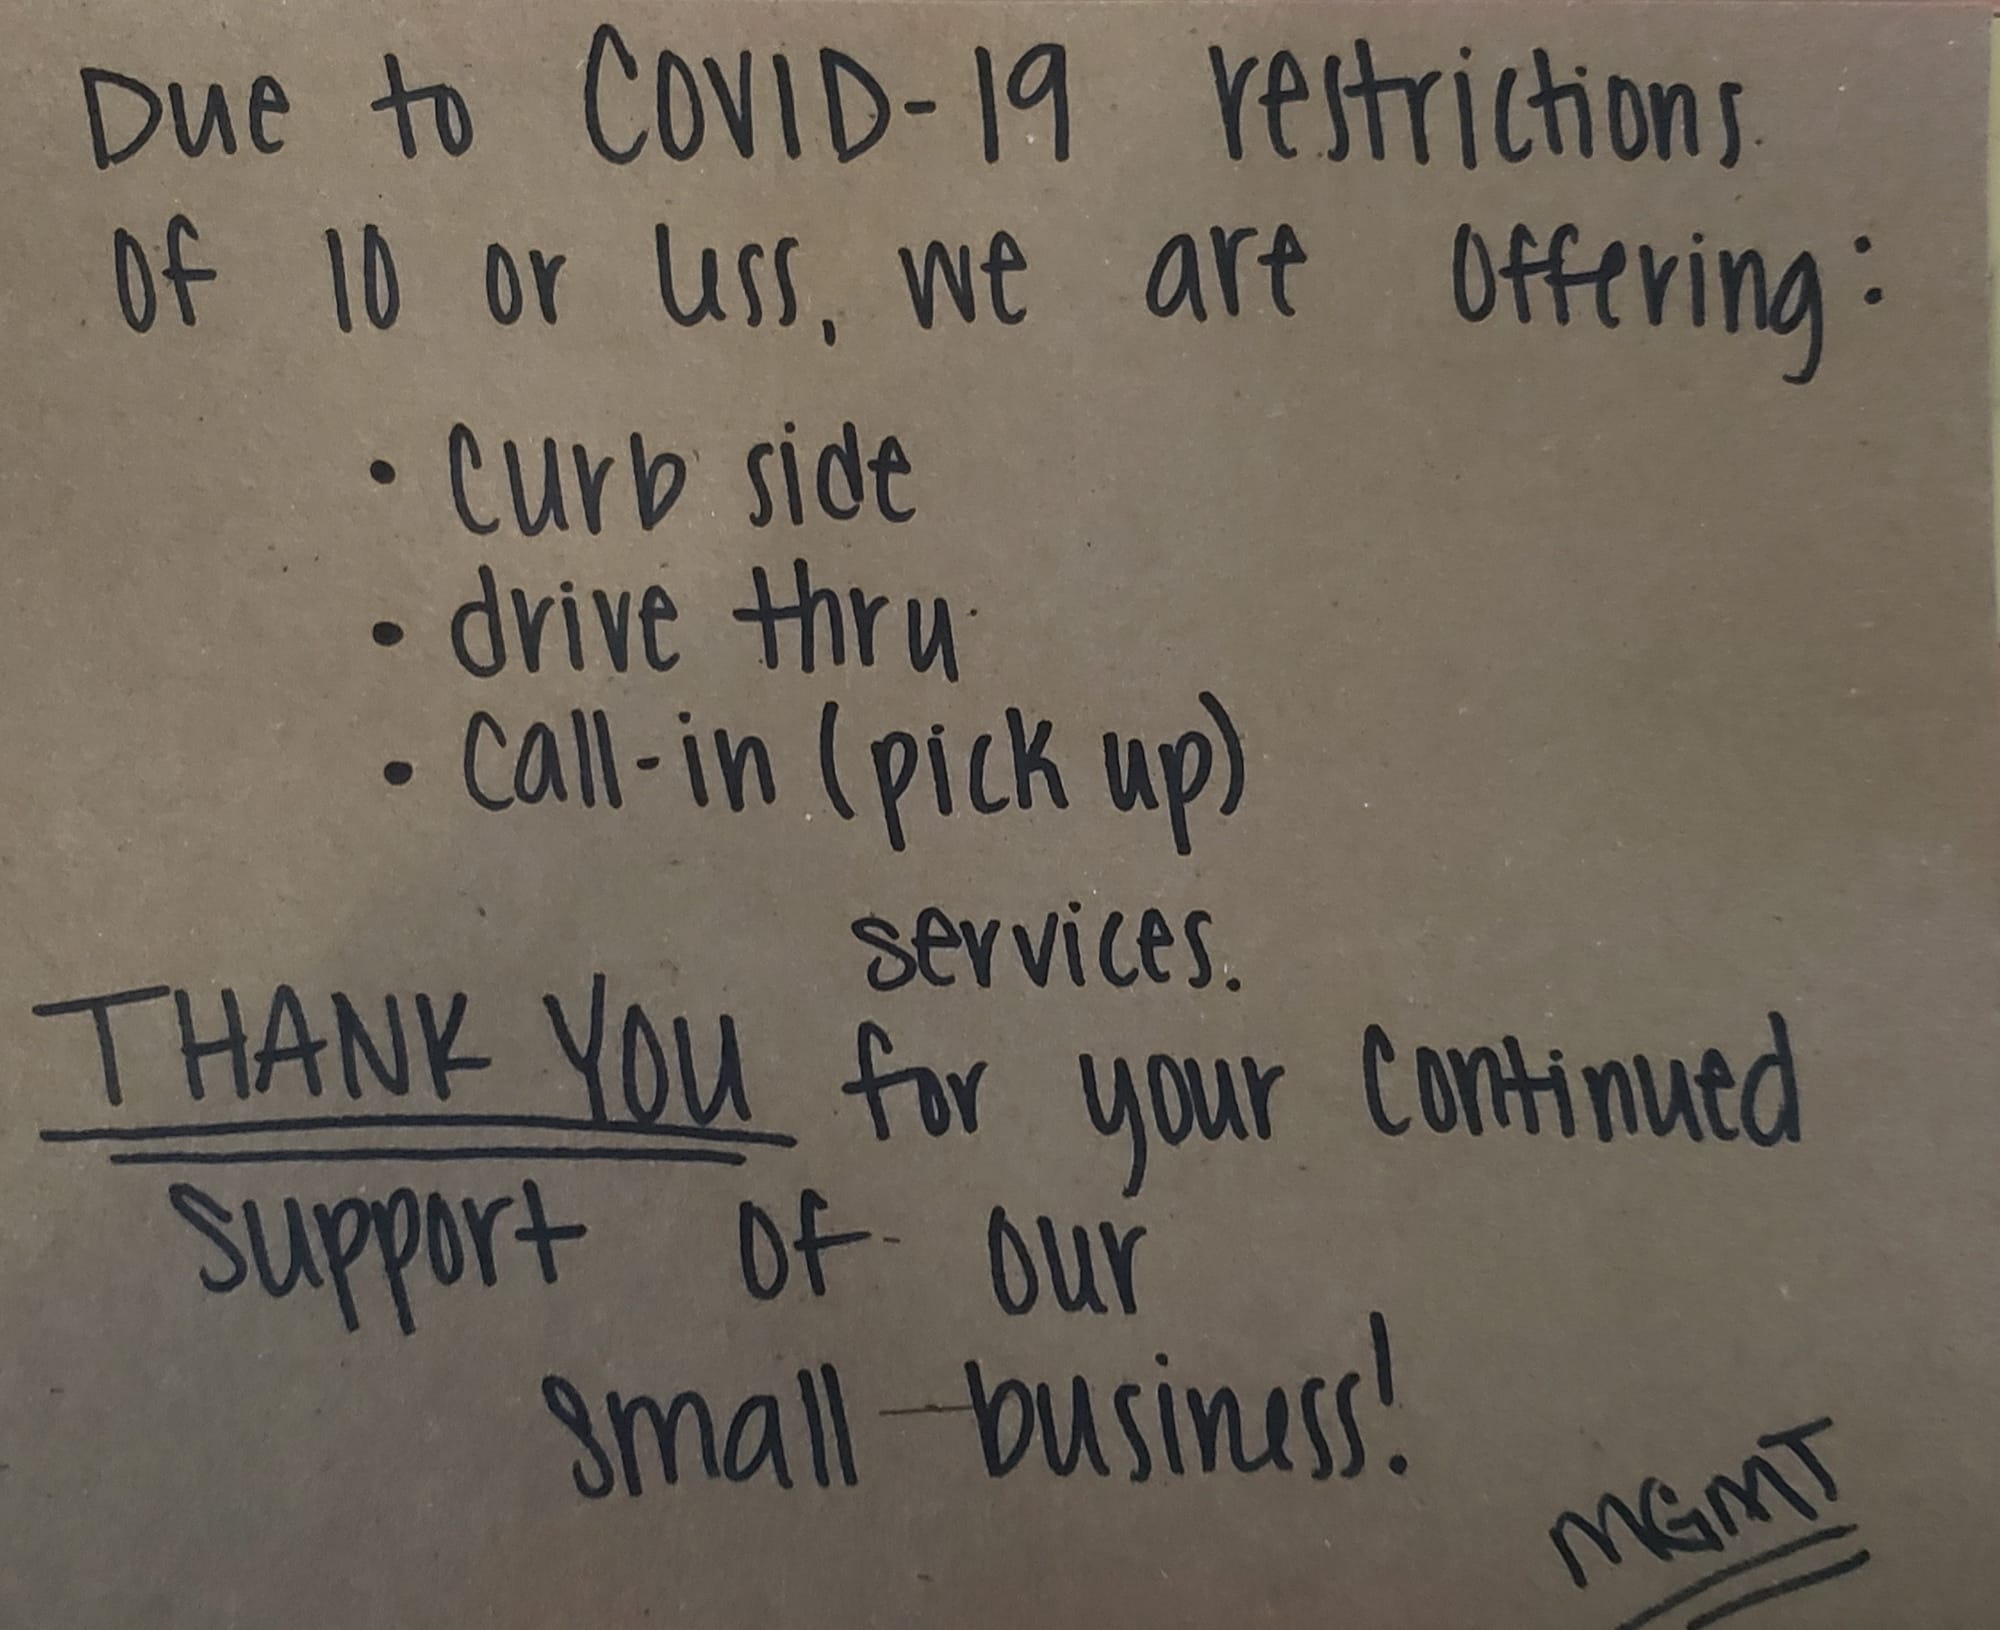 Due to COVID-19 restrictions
of 10 or less, we are offering:
• curb side
• drive thru
• call-in (pick up)
services.
THANK YOU for your continued
support of our
small business!
MGMT